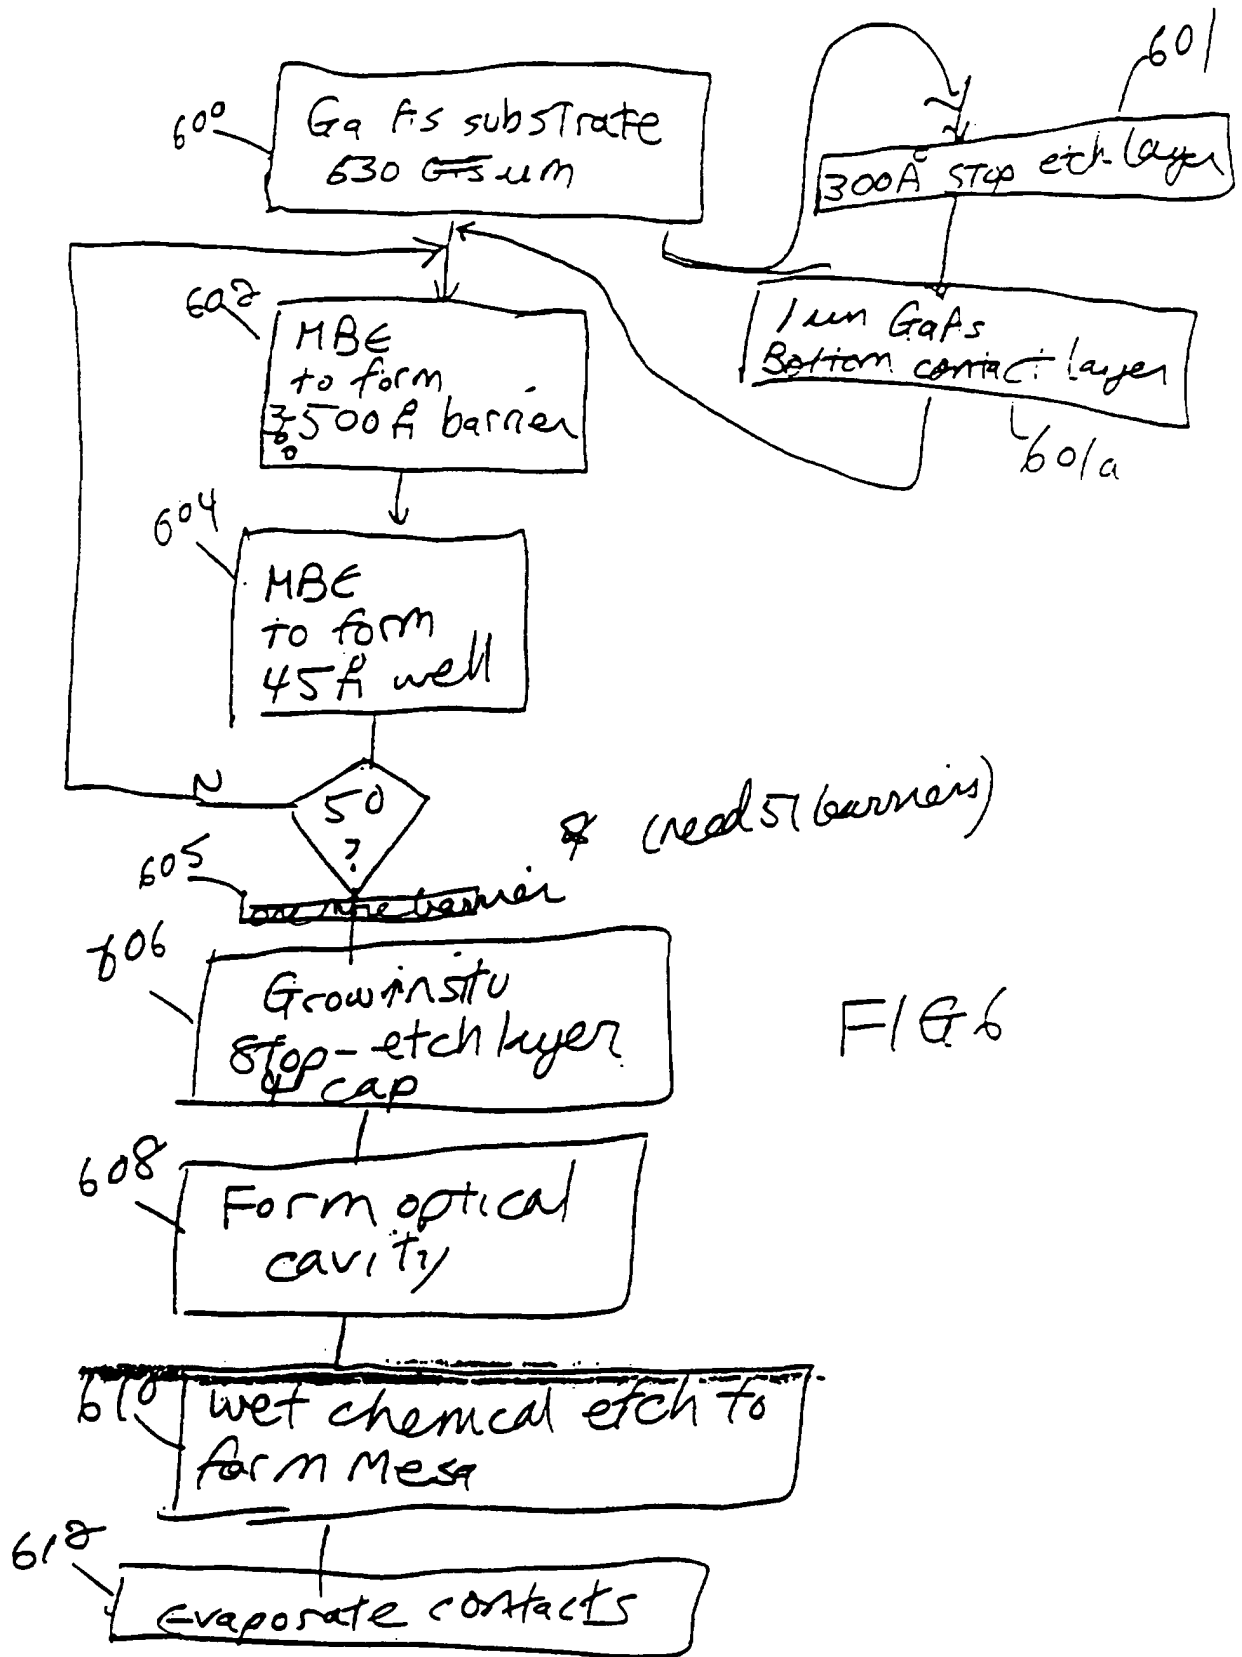 600
Ga As substrate
630 um
601
300Å stop etch layer
1 um GaAs
Bottom contact layer
601a
602
MBE
to form
500Å barrier
604
MBE
to form
45Å well
N
50
?
(need 51 barriers)
605
one more barrier
606
Grow insitu
Stop-etch layer
cap
608
Form optical
cavity
610
wet chemical etch to
form Mesa
612
Evaporate contacts
FIG 6